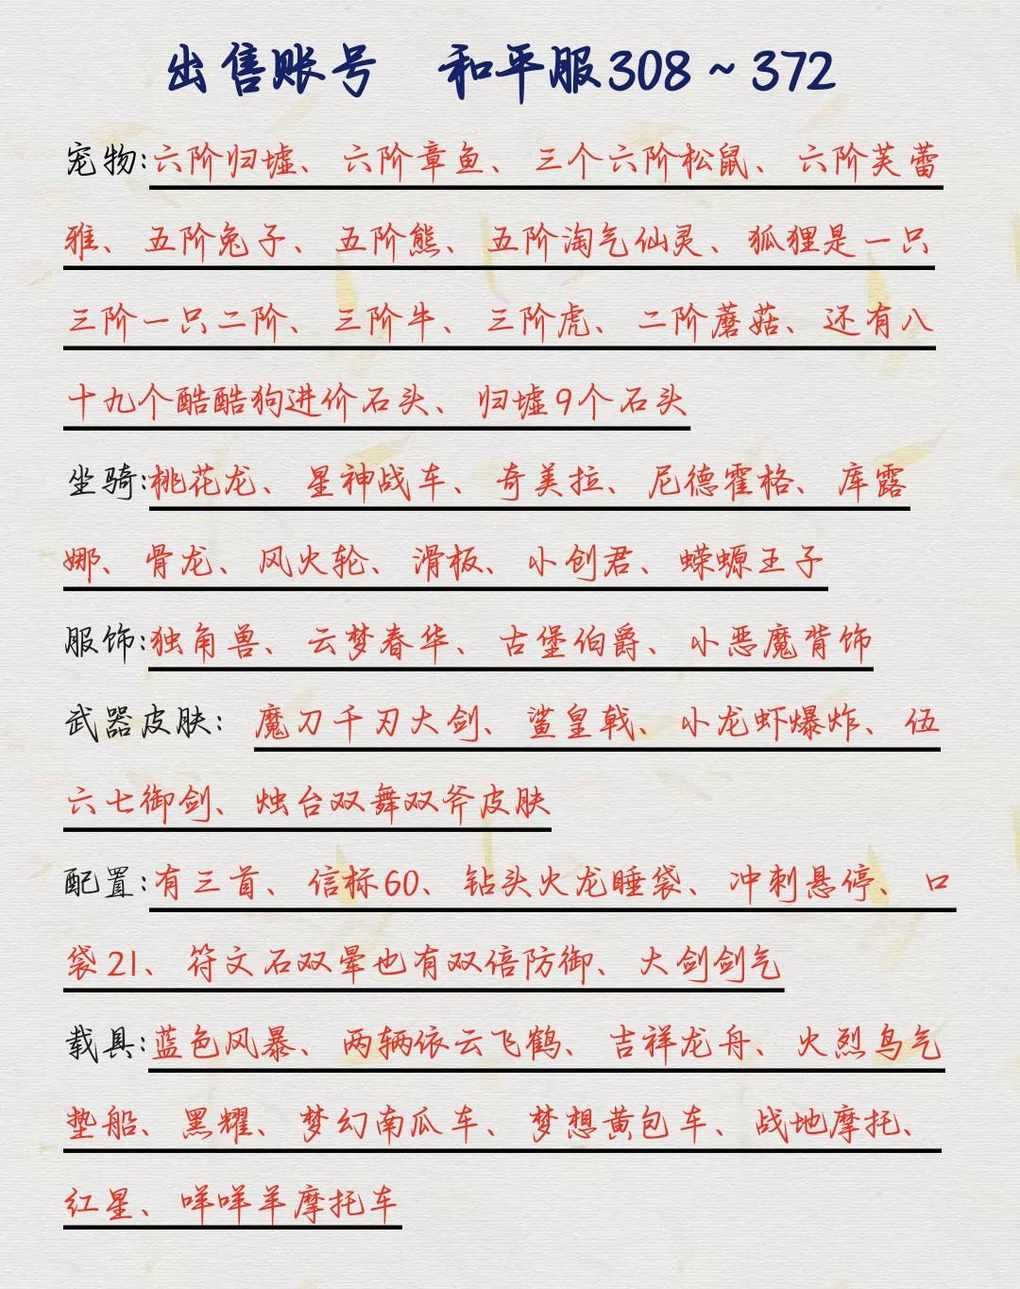 出售账号 和平服308~372
宠物:六阶归墟、六阶章鱼、三个六阶松鼠、六阶芙蕾
雅、五阶兔子、五阶熊、五阶淘气仙灵、狐狸是一只
三阶一只二阶、三阶牛、三阶虎、二阶蘑菇、还有八
十九个酷酷狗进价石头、归墟9个石头
坐骑:桃花龙、星神战车、奇美拉、尼德霍格、库露
娜、骨龙、风火轮、滑板、小创君、蝾螈王子
服饰:独角兽、云梦春华、古堡伯爵、小恶魔背饰
武器皮肤:魔刀千刃大剑、鲨皇戟、小龙虾爆炸、伍
六七御剑、烛台双舞双斧皮肤
配置:有三首、信标60、钻头火龙睡袋、冲刺悬停、口
袋21、符文石双晕也有双倍防御、大剑剑气
载具:蓝色风暴、两辆依云飞鹤、吉祥龙舟、火烈鸟气
垫船、黑耀、梦幻南瓜车、梦想黄包车、战地摩托、
红星、咩咩羊摩托车